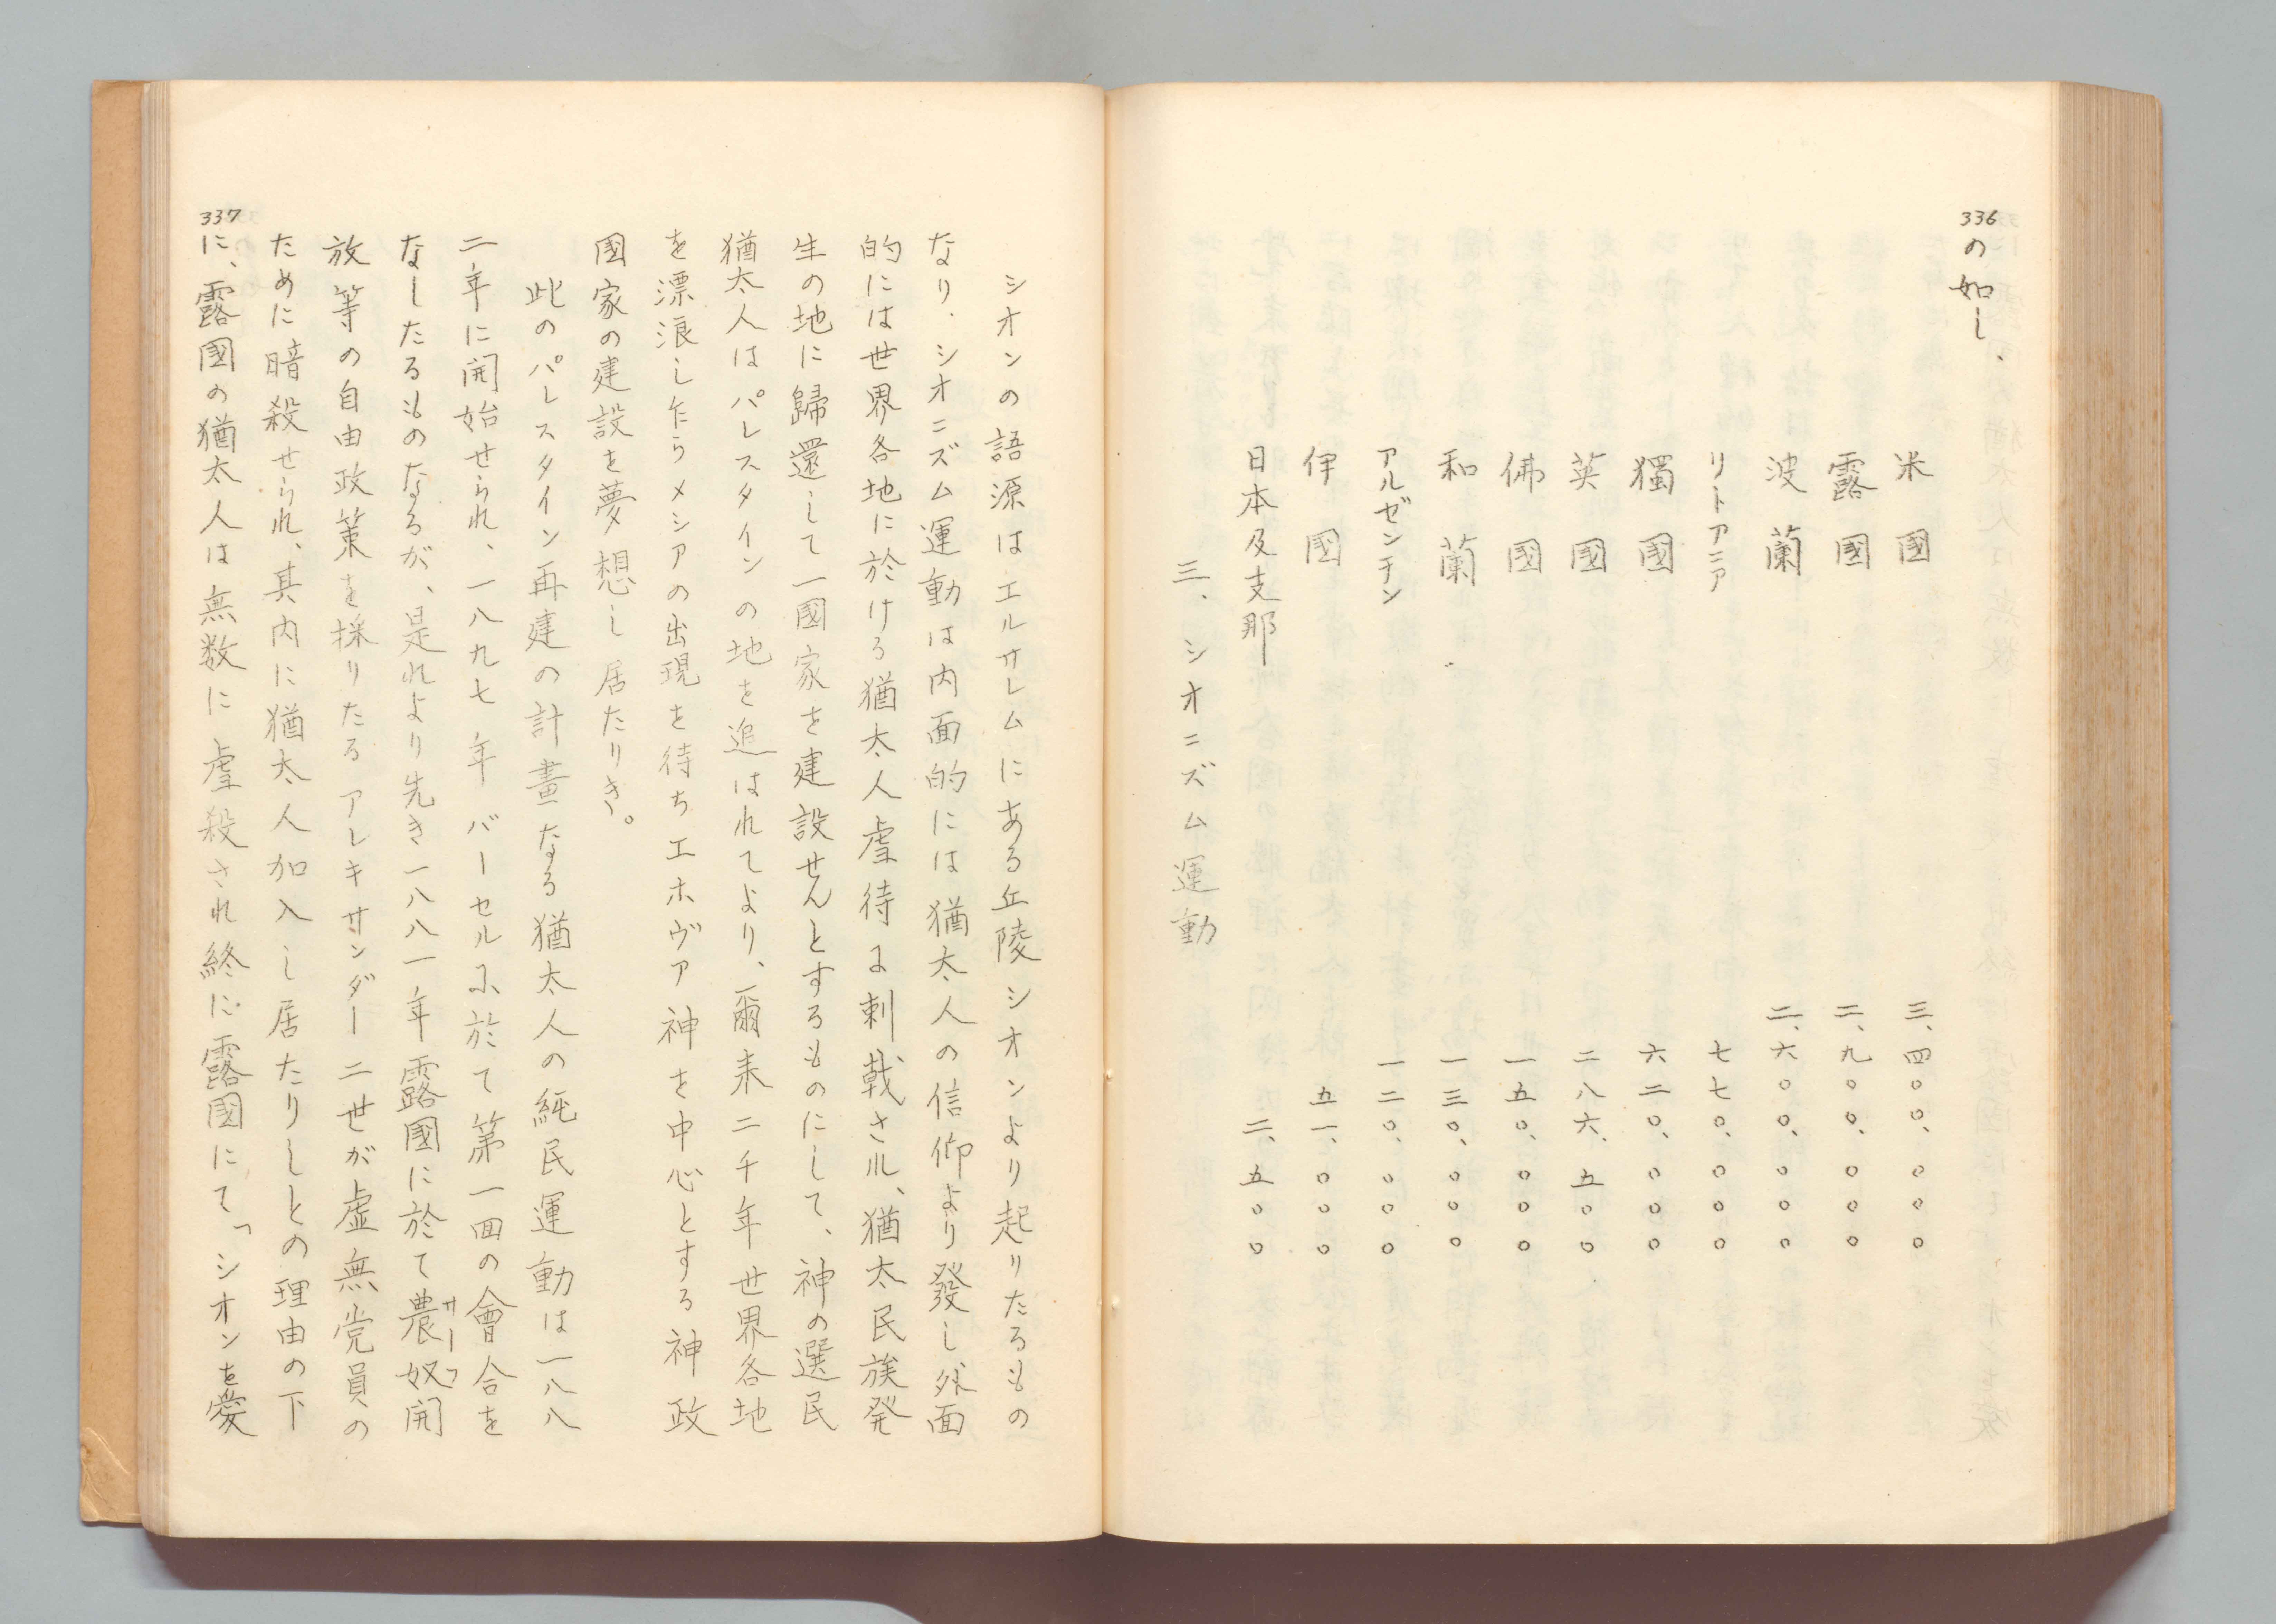 336
の如し、
米國 三、四〇〇、〇〇〇
露國 二、九〇〇、〇〇〇
波蘭 二、六〇〇、〇〇〇
リトアニア 七七〇、〇〇〇
獨國 六二〇、〇〇〇
英國 二八六、五〇〇
佛國 一五〇、〇〇〇
和蘭 一三〇、〇〇〇
アルゼンチン 一二〇、〇〇〇
伊國 五一、〇〇〇
日本及支那 二、五〇〇
三、シオニズム運動
シオンの語源はエルサレムにある丘陵シオンより起りたるもの
なり、シオニズム運動は内面的には猶太人の信仰より發し外面
的には世界各地に於ける猶太人虐待に刺戟され、猶太民族発
生の地に歸還して一國家を建設せんとするものにして、神の選民
猶太人はパレスタインの地を追はれてより、爾来二千年世界各地
を漂浪し乍らメシアの出現を待ちエホヴア神を中心とする神政
國家の建設を夢想し居たりき。
此のパレスタイン再建の計畫なる猶太人の純民運動は一八八
二年に開始せられ、一八九七年バーセルに於て第一回の會合を
なしたるものなるが、是れより先き一八八一年露國に於て農奴開
サーフ
放等の自由政策を採りたるアレキサンダー二世が虚無党員の
ために暗殺せられ、其内に猶太人加入し居たりしとの理由の下
337
に、露國の猶太人は無数に虐殺され終に露國にて、「シオンを愛